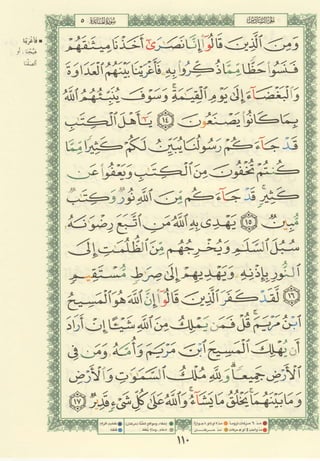 سُورَةُ المَائِدَةِ ٥
وَمِنَ الَّذِينَ قَالُوا إِنَّا نَصَارَىٰ أَخَذْنَا مِيثَاقَهُمْ
فَنَسُوا حَظًّا مِمَّا ذُكِّرُوا بِهِ فَأَغْرَيْنَا بَيْنَهُمُ الْعَدَاوَةَ
وَالْبَغْضَاءَ إِلَىٰ يَوْمِ الْقِيَامَةِ وَسَوْفَ يُنَبِّئُهُمُ اللَّهُ
بِمَا كَانُوا يَصْنَعُونَ ١٤ يَا أَهْلَ الْكِتَابِ
قَدْ جَاءَكُمْ رَسُولُنَا يُبَيِّنُ لَكُمْ كَثِيرًا مِمَّا
كُنْتُمْ تُخْفُونَ مِنَ الْكِتَابِ وَيَعْفُوا عَنْ
كَثِيرٍ قَدْ جَاءَكُمْ مِنَ اللَّهِ نُورٌ وَكِتَابٌ
مُبِينٌ ١٥ يَهْدِي بِهِ اللَّهُ مَنِ اتَّبَعَ رِضْوَانَهُ
سُبُلَ السَّلَامِ وَيُخْرِجُهُمْ مِنَ الظُّلُمَاتِ إِلَى
النُّورِ بِإِذْنِهِ وَيَهْدِيهِمْ إِلَىٰ صِرَاطٍ مُسْتَقِيمٍ
١٦ لَقَدْ كَفَرَ الَّذِينَ قَالُوا إِنَّ اللَّهَ هُوَ الْمَسِيحُ
ابْنُ مَرْيَمَ قُلْ فَمَنْ يَمْلِكُ مِنَ اللَّهِ شَيْئًا إِنْ أَرَادَ
أَنْ يُهْلِكَ الْمَسِيحَ ابْنَ مَرْيَمَ وَأُمَّهُ وَمَنْ فِي
الْأَرْضِ جَمِيعًا وَلِلَّهِ مُلْكُ السَّمَاوَاتِ وَالْأَرْضِ
وَمَا بَيْنَهُمَا يَخْلُقُ مَا يَشَاءُ وَاللَّهُ عَلَىٰ كُلِّ شَيْءٍ قَدِيرٌ ١٧
١١٠